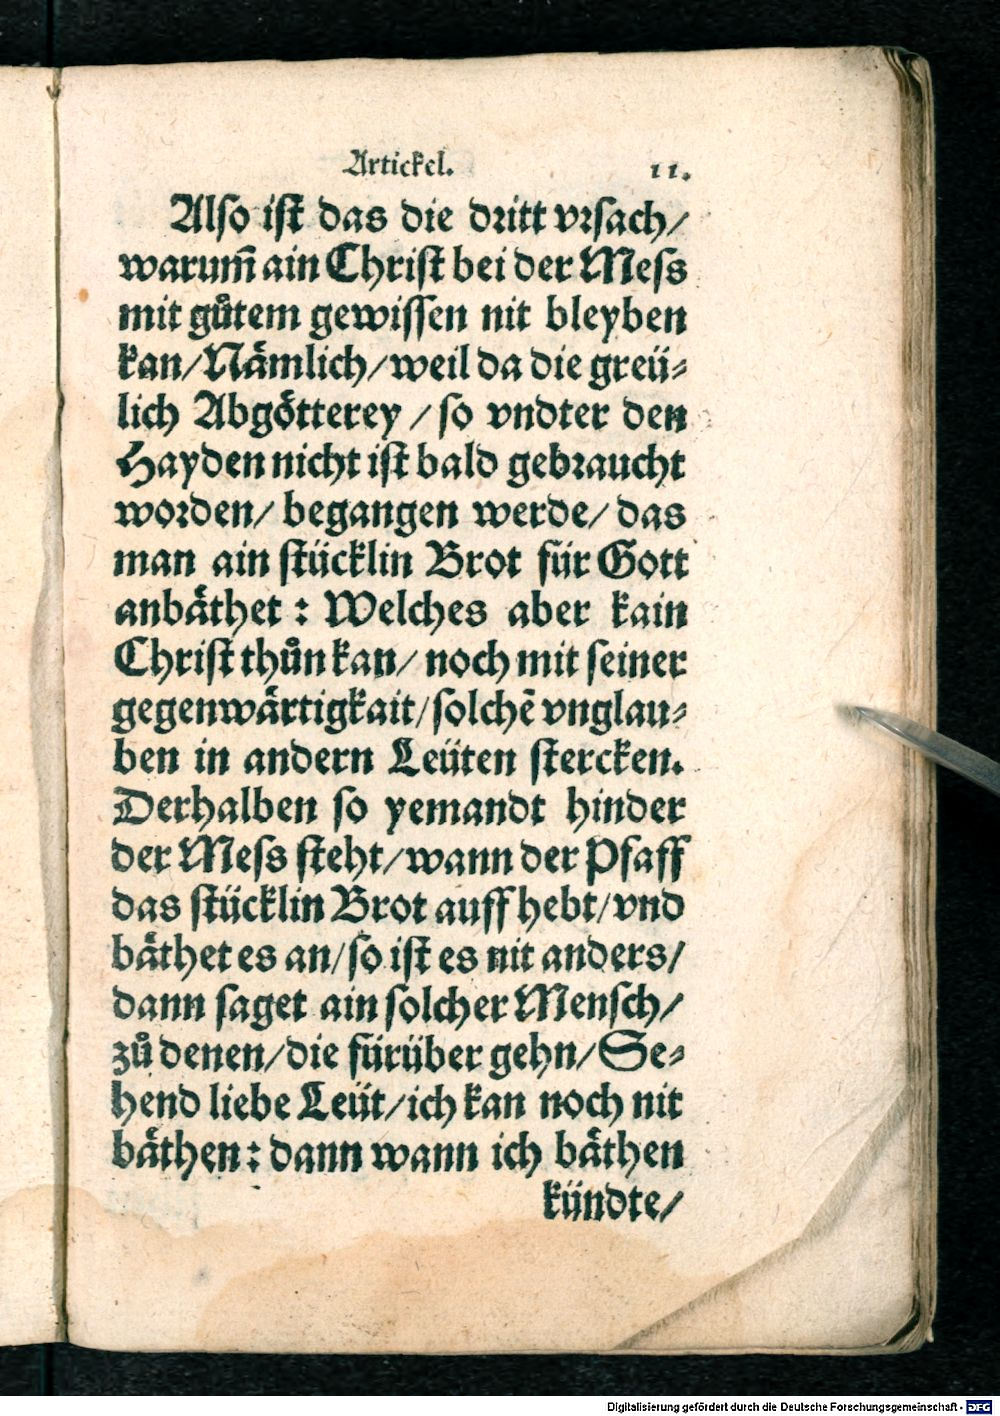 Artickel. 11.
Also ist das die dritt vrsach/
warum̃ ain Christ bei der Mess
mit gůtem gewissen nit bleyben
kan/Nämlich/weil da die greü⸗
lich Abgötterey/so vndter den
Hayden nicht ist bald gebraucht
worden/begangen werde/das
man ain stücklin Brot für Gott
anbäthet: Welches aber kain
Christ thůn kan/noch mit seiner
gegenwärtigkait/solchẽ vnglau⸗
ben in andern Leüten stercken.
Derhalben so yemandt hinder
der Mess steht/wann der Pfaff
das stücklin Brot auff hebt/vnd
bäthet es an/so ist es nit anders/
dann saget ain solcher Mensch/
zů denen/die fürüber gehn/Se⸗
hend liebe Leüt/ich kan noch nit
bäthen: dann wann ich bäthen
kündte/
Digitalisierung gefördert durch die Deutsche Forschungsgemeinschaft - DFG